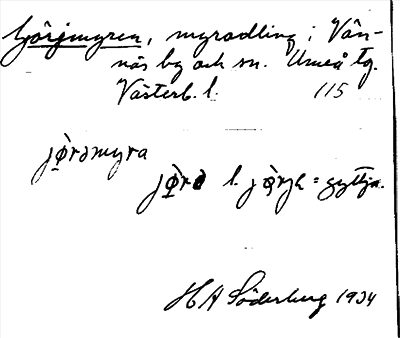 Görjmyren, myrodling i Vän-
näs by och sn. Umeå tg.
Västerb. l. 115
jø̀rəmyra
jø̀rə l. jø̀rjə = gyttja.
H A Söderberg 1934